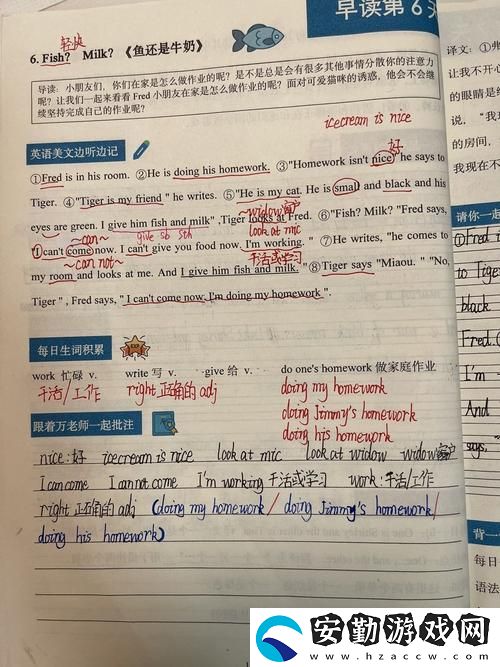 早读第6天
轻快
6. Fish? Milk?《鱼还是牛奶》
导读：小朋友们，你们在家是怎么做作业的呢？是不是总是会有很多其他事情分散你的注意力
呢？让我们一起来看看 Fred 小朋友在家是怎么做作业的呢？面对可爱猫咪的诱惑，他会不会继
续坚持完成自己的作业呢？
icecream is nice
英语美文边听边记
好
①Fred is in his room. ②He is doing his homework. ③"Homework isn't nice," he says to
Tiger. ④"Tiger is my friend " he writes. ⑤"He is my cat. He is small and black and his
~widow窗户
eyes are green. I give him fish and milk" ,Tiger looks at Fred. ⑥"Fish? Milk? "Fred says,
~can~ give sb sth look at mic
"I can't come now. I can't give you food now, I'm working. " ⑦He writes, "he comes to
~can not~ 干活或学习
my room and looks at me. And I give him fish and milk. "⑧Tiger says "Miaou. " "No,
Tiger " , Fred says, " I can't come now, I'm doing my homework ".
每日生词积累
work 忙碌 v. write 写 v. give 给 v. do one's homework 做家庭作业
干活/工作 right 正确的 adj doing my homework
doing Jimmy's homework
doing his homework
跟着万老师一起批注
nice:好 icecream is nice look at mic look at widow widow窗户
I can come I can not come I'm working 干活或学习 work:干活/工作
right 正确的 adj (doing my homework / doing Jimmy's homework/
doing his homework)
译文：①弗
让我不开心
的眼睛是绿
说，"我现
的房间，
我现在不
请你一起
①Fred is
to Tiger
black
Fred.
I'm
And
背一
每日
语法
安勤游戏网